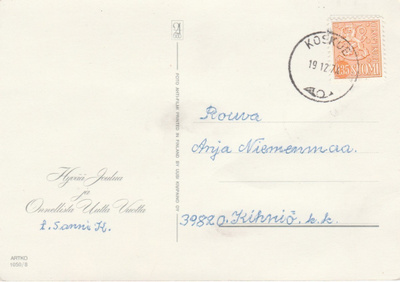 KOSKUE
19.12.7
SUOMI
Rouva
Anja Niemenmaa.
39820 Kihniö. k.k.
Hyvää Joulua
ja
Onnellista Uutta Vuotta
t. Sanni H.
ARTKO
1650/8